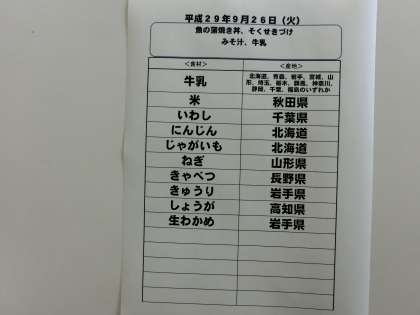 平成29年9月26日（火）
魚の蒲焼き丼、そくせきづけ
みそ汁、牛乳
＜食材＞ ＜産地＞
牛乳 北海道、青森、岩手、宮城、山
形、埼玉、栃木、群馬、神奈川、
静岡、千葉、福島のいずれか
米 秋田県
いわし 千葉県
にんじん 北海道
じゃがいも 北海道
ねぎ 山形県
きゃべつ 長野県
きゅうり 岩手県
しょうが 高知県
生わかめ 岩手県